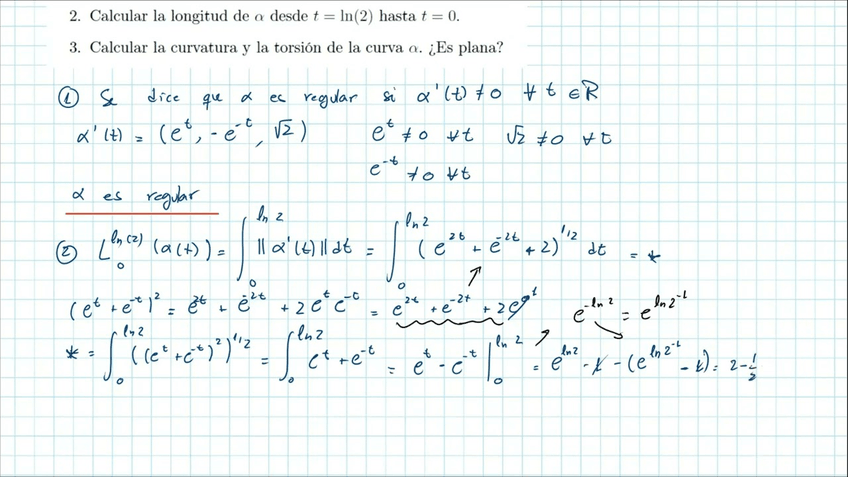 2. Calcular la longitud de α desde t = ln(2) hasta t = 0.
3. Calcular la curvatura y la torsión de la curva α. ¿Es plana?
① Se dice que α es regular si α'(t) ≠ 0 ∀ t ∈ ℝ
α'(t) = (e^t, -e^-t, √2) e^t ≠ 0 ∀t √2 ≠ 0 ∀t
e^-t ≠ 0 ∀t
α es regular
② L_0^ln(2) (α(t)) = ∫_0^ln 2 ||α'(t)|| dt = ∫_0^ln 2 (e^2t + e^-2t + 2)^1/2 dt = *
(e^t + e^-t)^2 = e^2t + e^-2t + 2e^t e^-t = e^2t + e^-2t + 2e^0 e^-ln 2 = e^ln 2^-1
* = ∫_0^ln 2 ((e^t + e^-t)^2)^1/2 = ∫_0^ln 2 e^t + e^-t = e^t - e^-t |_0^ln 2 = e^ln 2 - 1 - (e^ln 2^-1 - 1) = 2 - 1/2